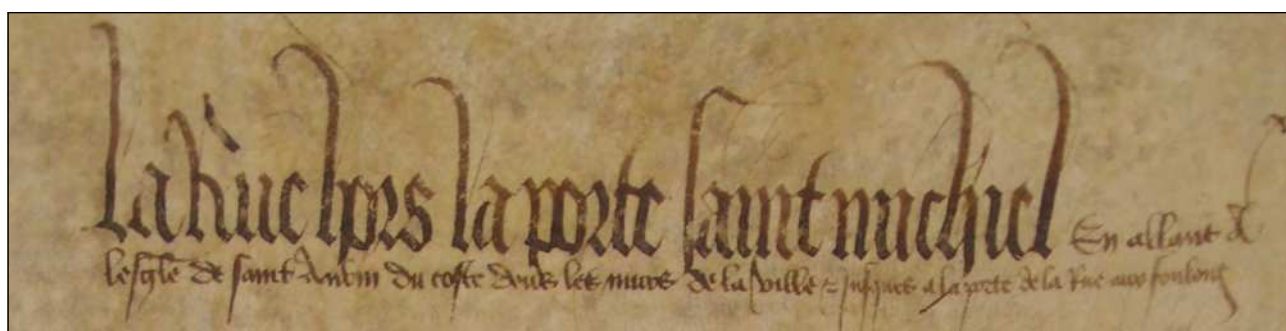 la Rue hors la porte saint michiel En allant a
lesgle de saint Aubin du coste deuers les murs de la ville & jusques a la porte de la Rue aux foulons